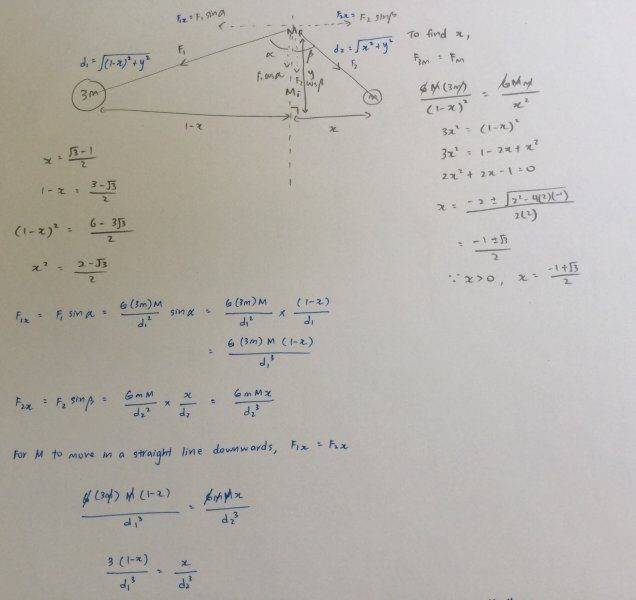 F₁ₓ = F₁ sinα
F₂ₓ = F₂ sinβ
d₁ = √((1-x)² + y²)
F₁
α
β
d₂ = √(x² + y²)
F₁ cosα
F₂ cosβ
y
F₂
3m
m
1-x
x
To find x,
F₃ₘ = Fₘ
GM(3m)/(1-x)² = GMm/x²
3x² = (1-x)²
3x² = 1 - 2x + x²
2x² + 2x - 1 = 0
x = (-2 ± √(2² - 4(2)(-1)))/2(2)
= (-1 ± √3)/2
∵ x > 0, x = (-1 + √3)/2
x = (√3 - 1)/2
1-x = (3 - √3)/2
(1-x)² = (6 - 3√3)/2
x² = (2 - √3)/2
F₁ₓ = F₁ sinα = G(3m)M/d₁² sinα = G(3m)M/d₁² × (1-x)/d₁
= G(3m)M(1-x)/d₁³
F₂ₓ = F₂ sinβ = GmM/d₂² × x/d₂ = GmMx/d₂³
For M to move in a straight line downwards, F₁ₓ = F₂ₓ
G(3m)M(1-x)/d₁³ = GmMx/d₂³
3(1-x)/d₁³ = x/d₂³